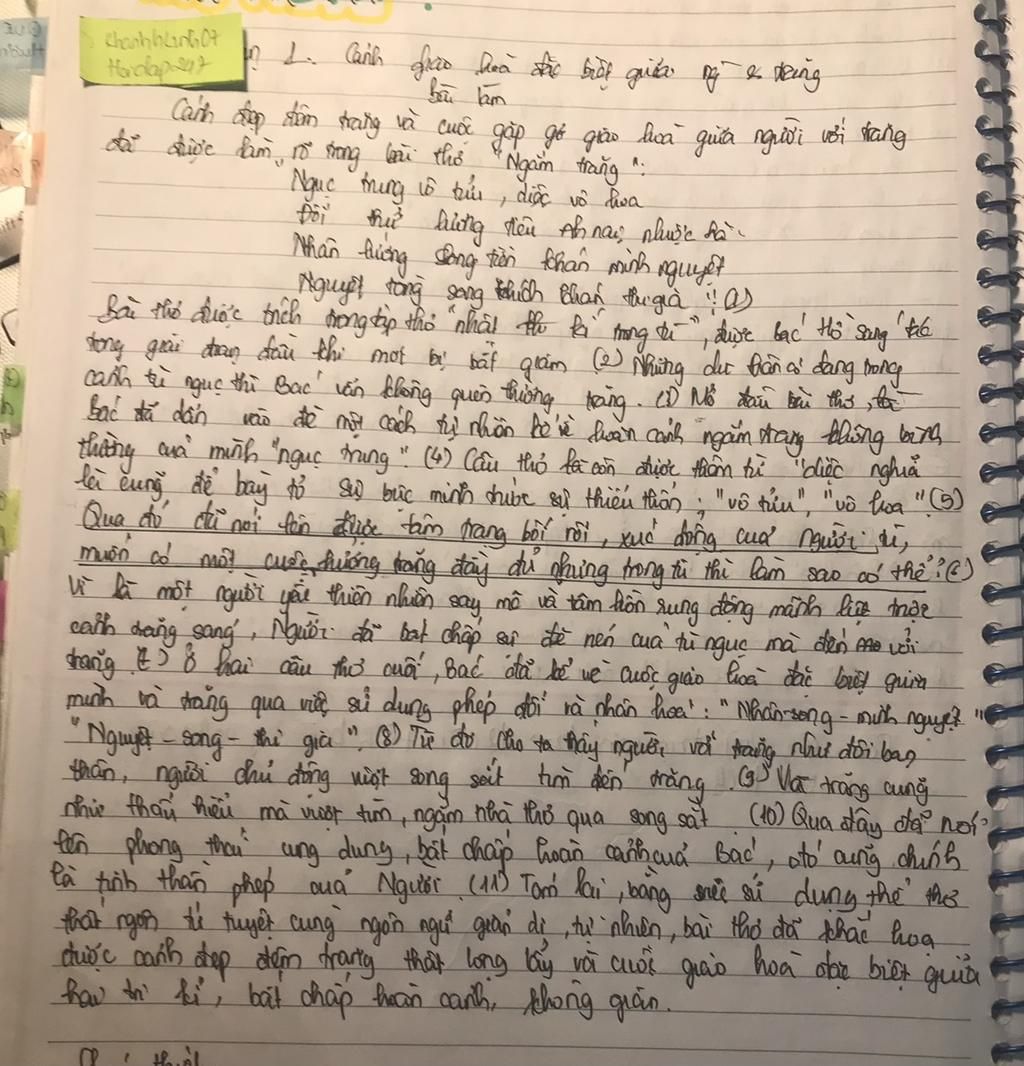 khanhhuyen07
Hoidap247
1. Cảnh giao hoà đặc biệt giữa ng & trăng
Bài làm
Cảnh đẹp đêm trăng và cuộc gặp gỡ giao hoà giữa người với trăng
đã được làm rõ trong bài thơ "Ngắm trăng":
Ngục trung vô tửu, diệc vô hoa
Đối thử lương tiêu nại nhược hà
Nhân hướng song tiền khán minh nguyệt
Nguyệt tòng song khích khán thi gia !! (1)
Bài thơ được trích trong tập thơ "nhật kí trong tù", được bác Hồ sáng tác
trong giai đoạn đầu khi mới bị bắt giam (2) Nhưng dù hoàn cảnh đang trong
cảnh tù ngục thì Bác vẫn không quên thưởng trăng. (3) Mở đầu bài thơ,
Bác đã dẫn vào đề một cách tự nhiên kể về hoàn cảnh ngắm trăng không bình
thường của mình "ngục trung" (4) Câu thơ lại còn được thêm từ "diệc nghĩa
là cũng, để bày tỏ sự bức mình trước sự thiếu thốn; "vô tửu", "vô hoa" (5)
Qua đó, đã nói lên được tâm trạng bối rối, xúc động của người tù,
muốn có một cuộc thưởng trăng đầy đủ nhưng trong tù thì làm sao có thể? (6)
Vì là một người yêu thiên nhiên say mê và tâm hồn rung động mãnh liệt trước
cảnh trăng sáng, Người đã bất chấp sự đè nén của tù ngục mà đến với
trăng (7) Ở hai câu thơ cuối, Bác đã kể về cuộc giao hoà đặc biệt giữa
mình và trăng qua việc sử dụng phép đối và nhân hoá: "Nhân-song-minh nguyệt"
"Nguyệt-song-thi gia". (8) Từ đó cho ta thấy người với trăng như đôi bạn
thân, người chủ động vượt song sắt tìm đến trăng. (9) Và trăng cũng
như thấu hiểu mà vượt tìm, ngắm nhà thơ qua song sắt. (10) Qua đây đã nói
lên phong thái ung dung, bất chấp hoàn cảnh của Bác, đó cũng chính
là tinh thần phép của Người. (11) Tóm lại, bằng việc sử dụng thể thơ
thất ngôn tứ tuyệt cùng ngôn ngữ giản dị, tự nhiên, bài thơ đã khắc hoạ
được cảnh đẹp đêm trăng thật long lẫy và cuộc giao hoà đặc biệt giữa
hai tri kỉ, bất chấp hoàn cảnh, không gian.